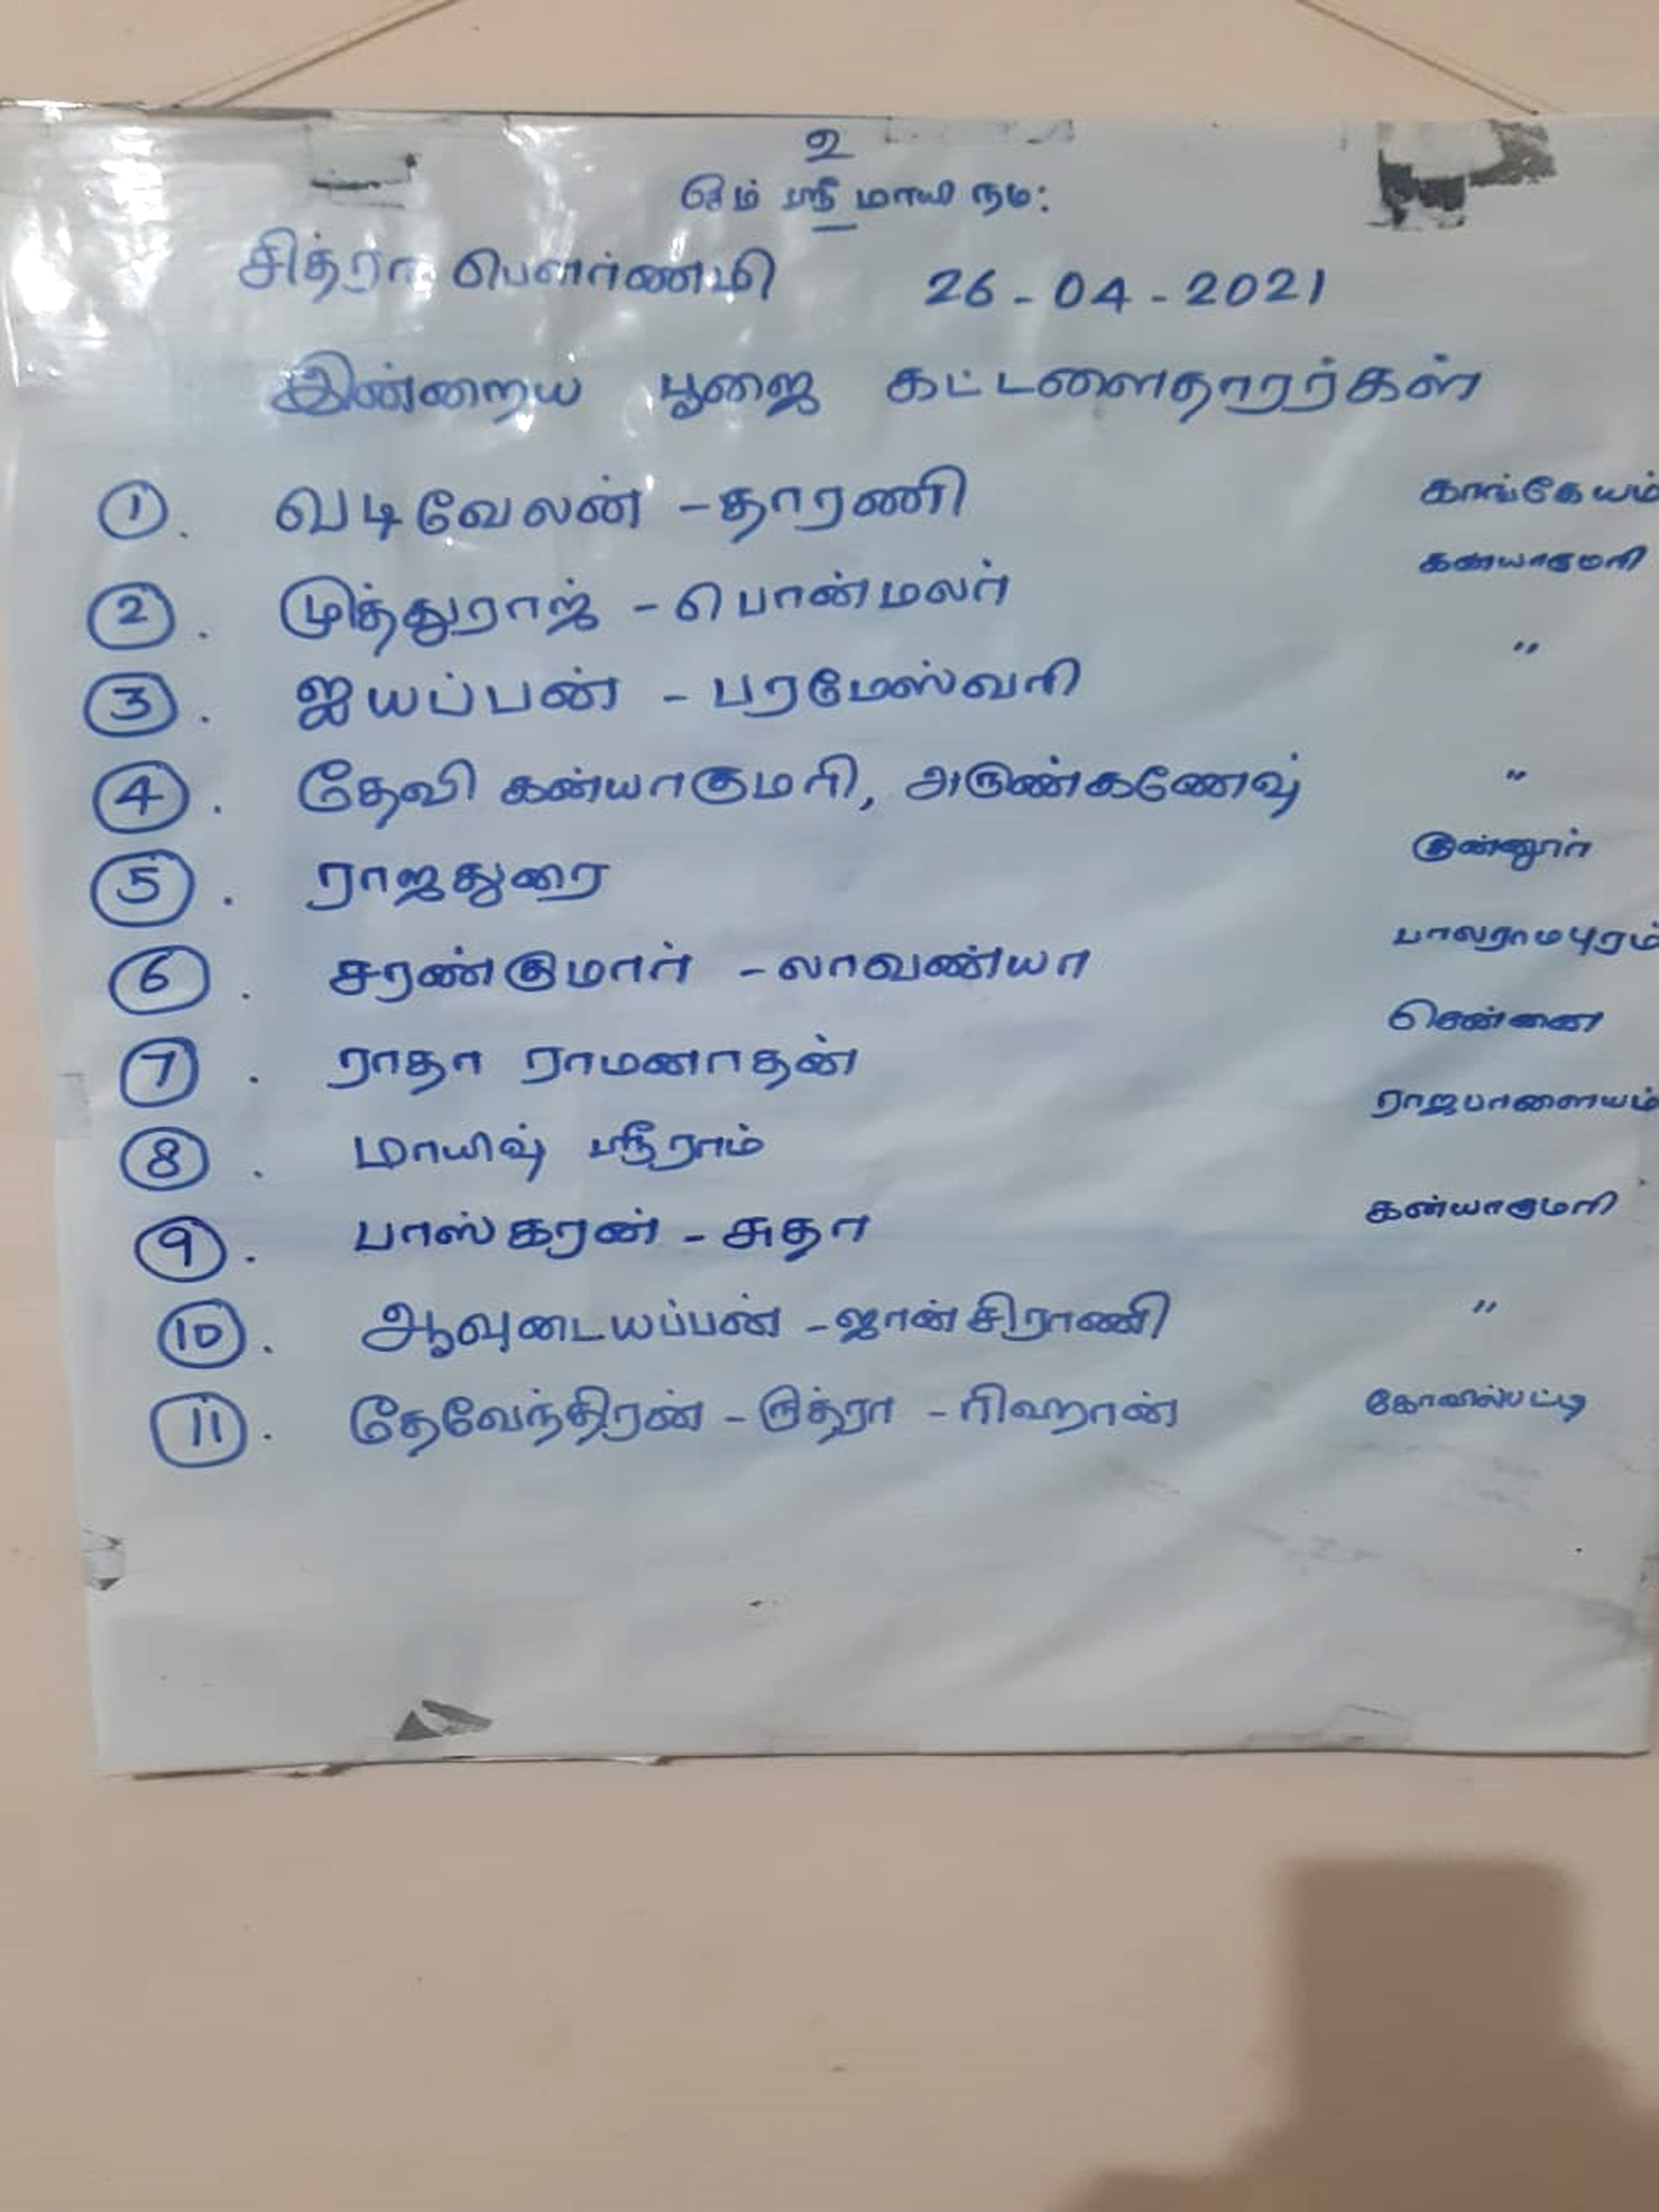 உ
ஓம் ஸ்ரீ மாயி நம:
சித்ரா பௌர்ணமி 26-04-2021
இன்றைய பூஜை கட்டளைதாரர்கள்
1. வடிவேலன் - தாரணி காங்கேயம்
2. முத்துராஜ் - பொன்மலர் கன்யாகுமரி
3. ஐயப்பன் - பரமேஸ்வரி "
4. தேவி கன்யாகுமரி, அருண்கணேஷ் "
5. ராஜதுரை குன்னூர்
6. சரண்குமார் - லாவண்யா பாலராமபுரம்
7. ராதா ராமனாதன் சென்னை
8. மாயிஷ் ஸ்ரீராம் ராஜபாளையம்
9. பாஸ்கரன் - சுதா கன்யாகுமரி
10. ஆவுடையப்பன் - ஜான்சிராணி "
11. தேவேந்திரன் - ருத்ரா - ரிஹான் கோவில்பட்டி